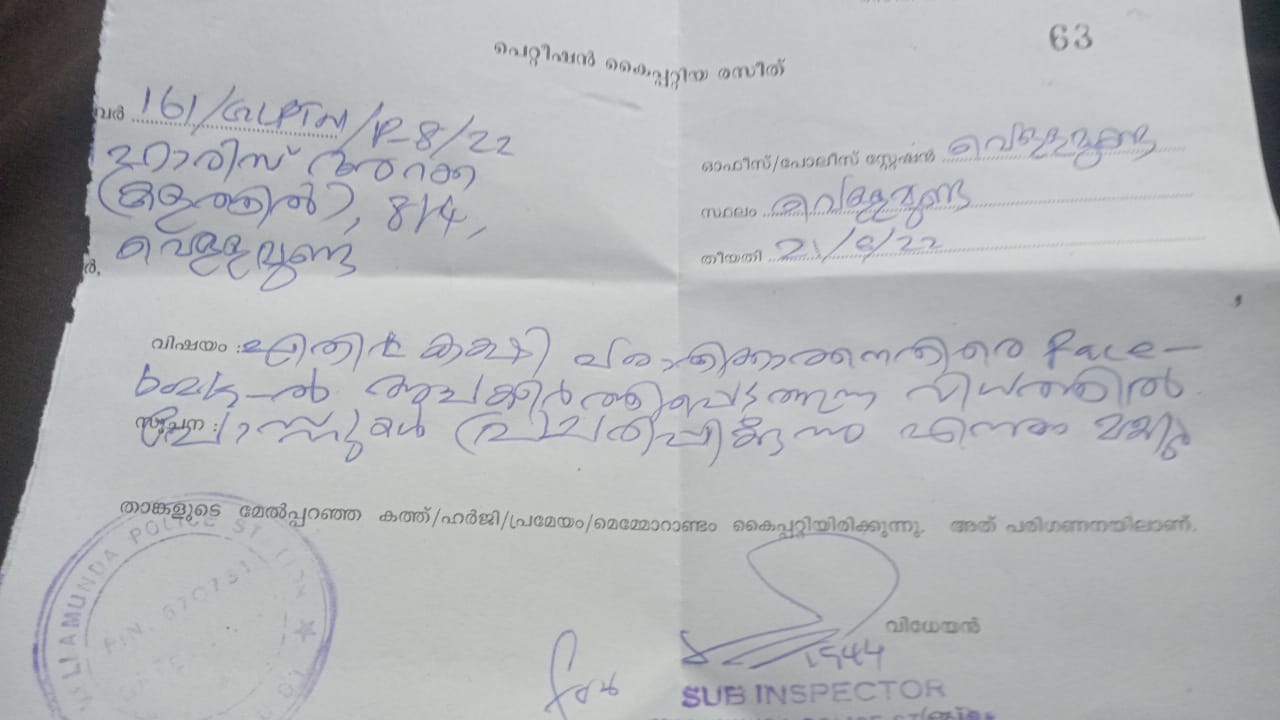 63
പെറ്റീഷൻ കൈപ്പറ്റിയ രസീത്
വർ 161/GLPTM/P-8/22
ഹാരിസ് അറക്ക
(കളത്തിൽ), 814,
വെള്ളമുണ്ട
ർ,
ഓഫീസ്/പോലീസ് സ്റ്റേഷൻ വെള്ളമുണ്ട
സ്ഥലം വെള്ളമുണ്ട
തീയതി 21/8/22
വിഷയം : എതിർ കക്ഷി പരാതിക്കാരനെതിരെ face-
book-ൽ അപകീർത്തിപ്പെടുത്തുന്ന വിധത്തിൽ
സൂചന : പോസ്റ്റുകൾ പ്രചരിപ്പിക്കുന്നു എന്നത്
താങ്കളുടെ മേൽപ്പറഞ്ഞ കത്ത്/ഹർജി/പ്രമേയം/മെമ്മോറാണ്ടം കൈപ്പറ്റിയിരിക്കുന്നു. അത് പരിഗണനയിലാണ്.
LIAMUNDA POLICE ST
PIN. 670731
വിധേയൻ
for
SUB INSPECTOR